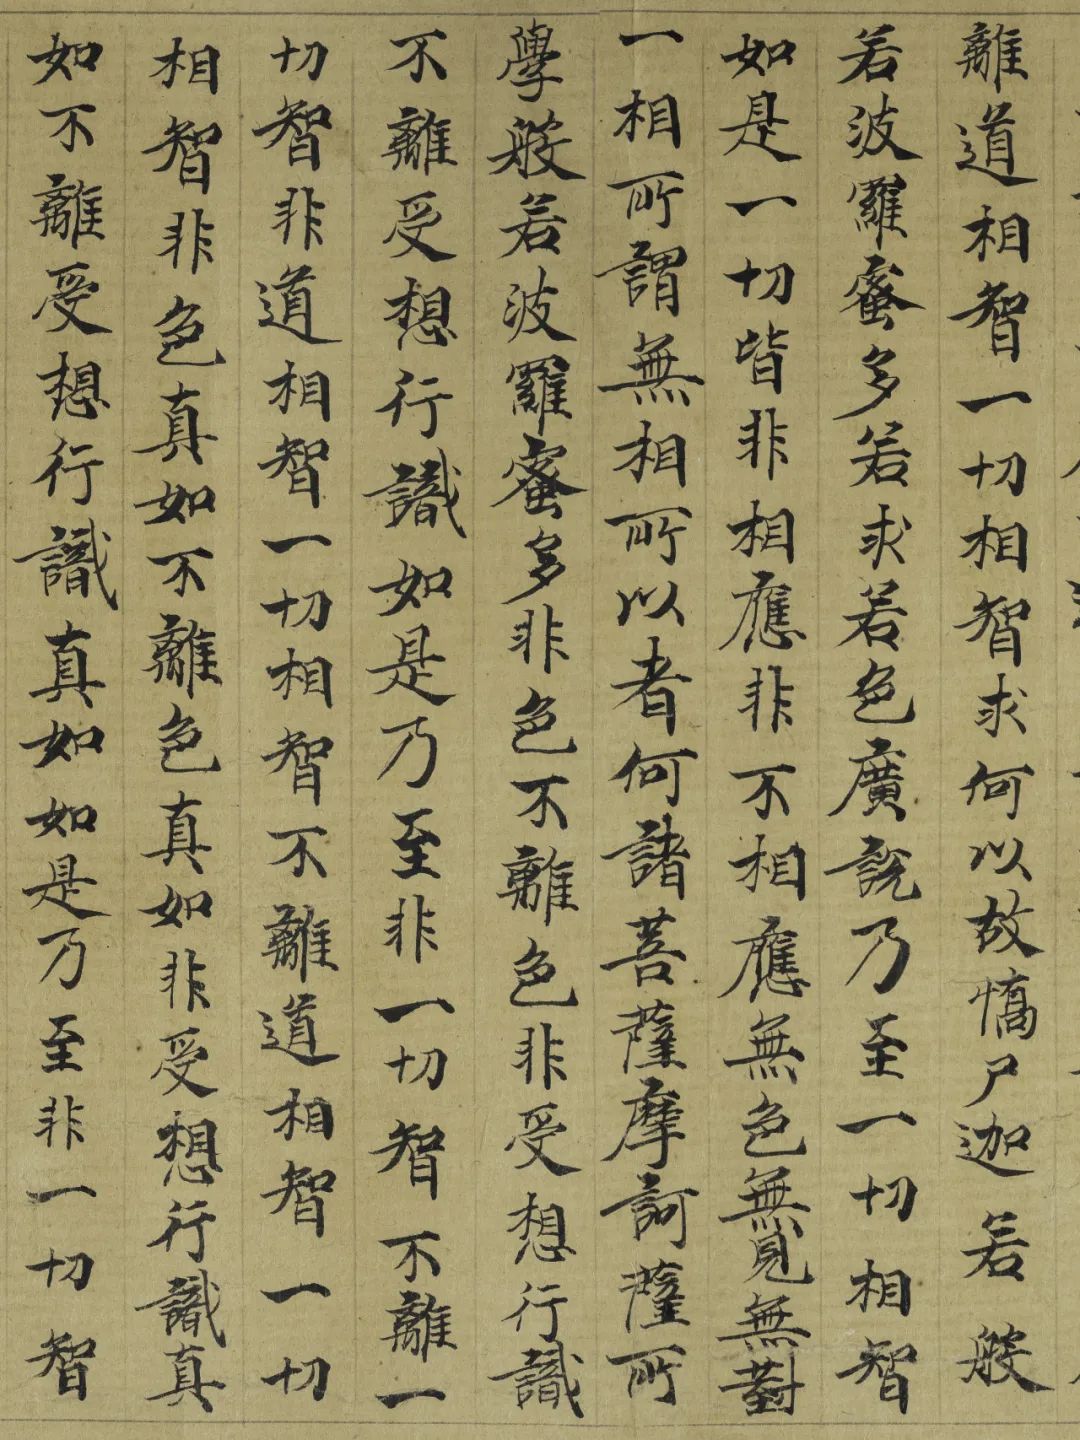 離道相智一切相智求何以故憍尸迦若般
若波羅蜜多若求若色廣說乃至一切相智
如是一切皆非相應非不相應無色無見無對
一相所謂無相所以者何諸菩薩摩訶薩所
學般若波羅蜜多非色不離色非受想行識
不離受想行識如是乃至非一切智不離一
切智非道相智一切相智不離道相智一切
相智非色真如不離色真如非受想行識真
如不離受想行識真如如是乃至非一切智